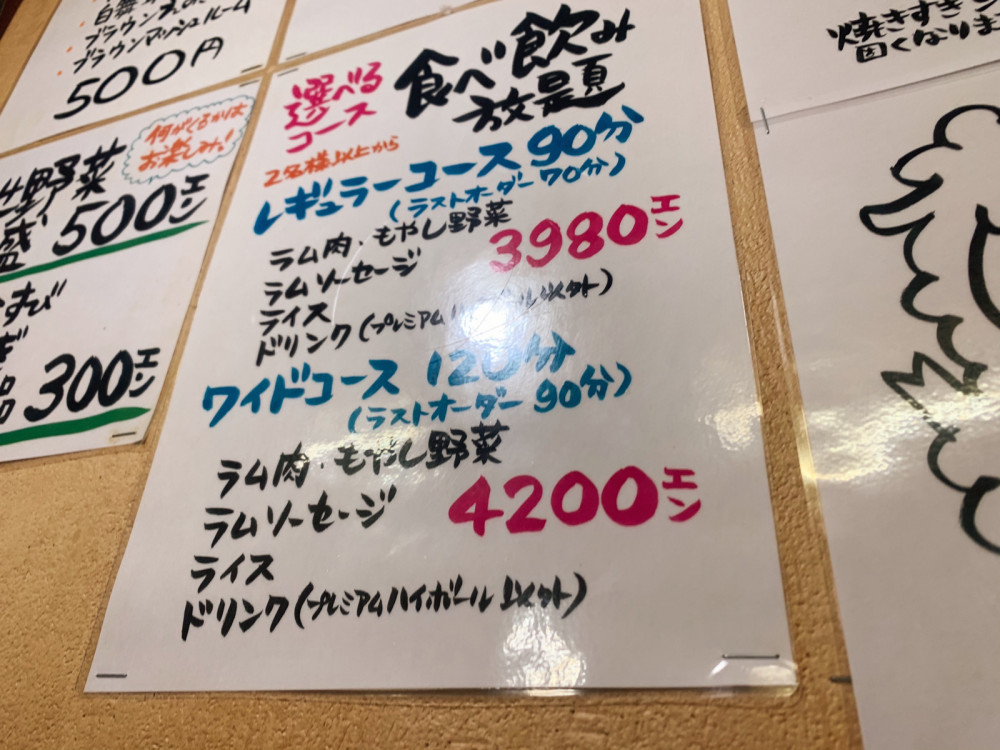 ブラウンマッシュルーム
500円
何がくるかは
お楽しみ!
野菜
盛
500エン
300エン
選べる
コース
食べ飲み
放題
2名様以上から
レギュラーコース 90分
(ラストオーダー70分)
ラム肉・もやし野菜
ラムソーセージ
3980エン
ライス
ドリンク(プレミアムハイボール以外)
ワイドコース 120分
(ラストオーダー90分)
ラム肉・もやし野菜
ラムソーセージ
4200エン
ライス
ドリンク(プレミアムハイボール以外)
焼きすぎ
固くなりま